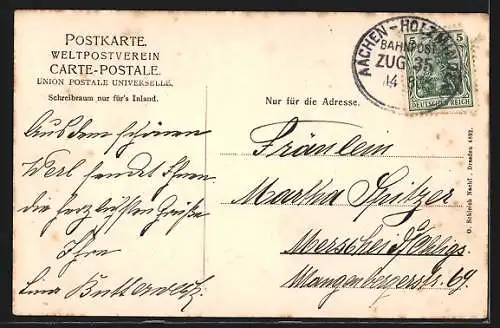 POSTKARTE.
WELTPOSTVEREIN
CARTE-POSTALE.
UNION POSTALE UNIVERSELLE.
Schreibraum nur für's Inland.
Aus dem schönen
Werl sendet Ihnen
die herzlichsten Grüße
Ihre
Lina Butterweck
AACHEN - HOLZMINDEN
BAHNPOST
ZUG 35
14 8
5 5
DEUTSCHES REICH
Nur für die Adresse.
Fräulein
Martha Spitzer
Merscheid b/Ohligs.
Mangenbergerstr. 69.
O. Schleich Nachf., Dresden 4892.